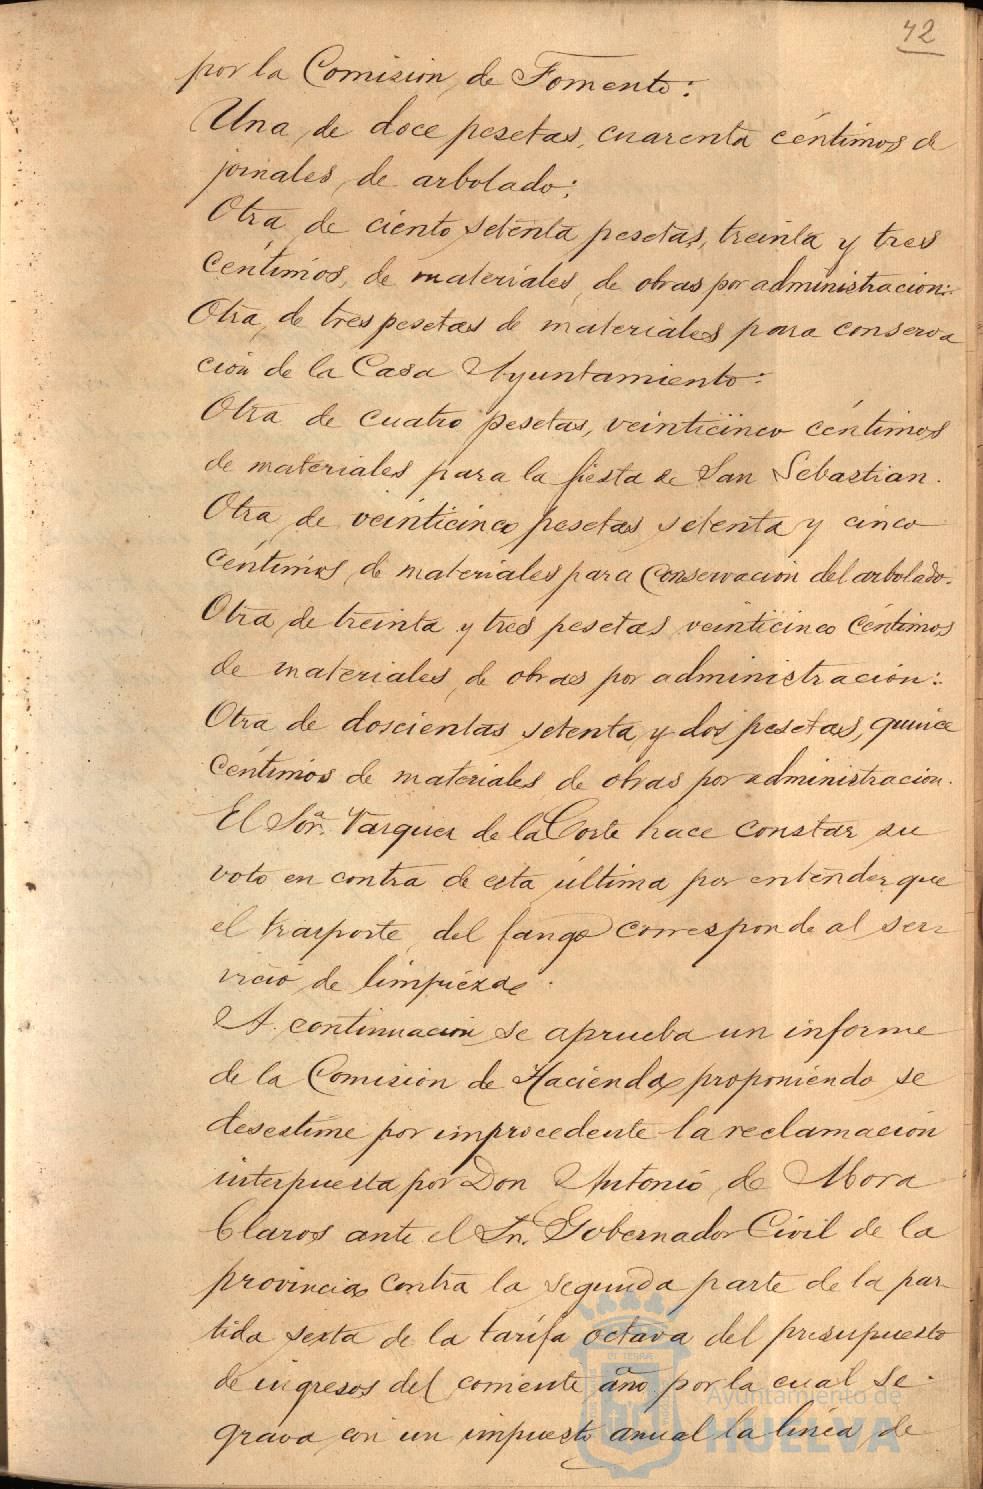 42
por la Comision de Fomento:
Una de doce pesetas, cuarenta céntimos de
jornales de arbolado:
Otra de ciento setenta pesetas, treinta y tres
céntimos, de materiales de obras por administracion:
Otra de tres pesetas de materiales para conserva
cion de la Casa Ayuntamiento:
Otra de cuatro pesetas, veinticinco céntimos
de materiales para la fiesta de San Sebastian.
Otra de veinticinco pesetas setenta y cinco
céntimos de materiales para conservacion del arbolado.
Otra de treinta y tres pesetas veinticinco céntimos
de materiales de obras por administracion:
Otra de doscientas setenta y dos pesetas, quince
céntimos de materiales de obras por administracion.
El Sor. Vazquez de la Corte hace constar su
voto en contra de esta última por entender que
el trasporte del fango corresponde al ser-
vicio de limpieza.
A continuacion se aprueba un informe
de la Comision de Hacienda proponiendo se
desestime por improcedente la reclamacion
interpuesta por Don Antonio de Mora
Claros ante el Sr. Gobernador Civil de la
provincia contra la segunda parte de la par-
tida sexta de la tarifa octava del presupuesto
de ingresos del corriente año por la cual se
grava con un impuesto anual la línea de
Ayuntamiento de
HUELVA